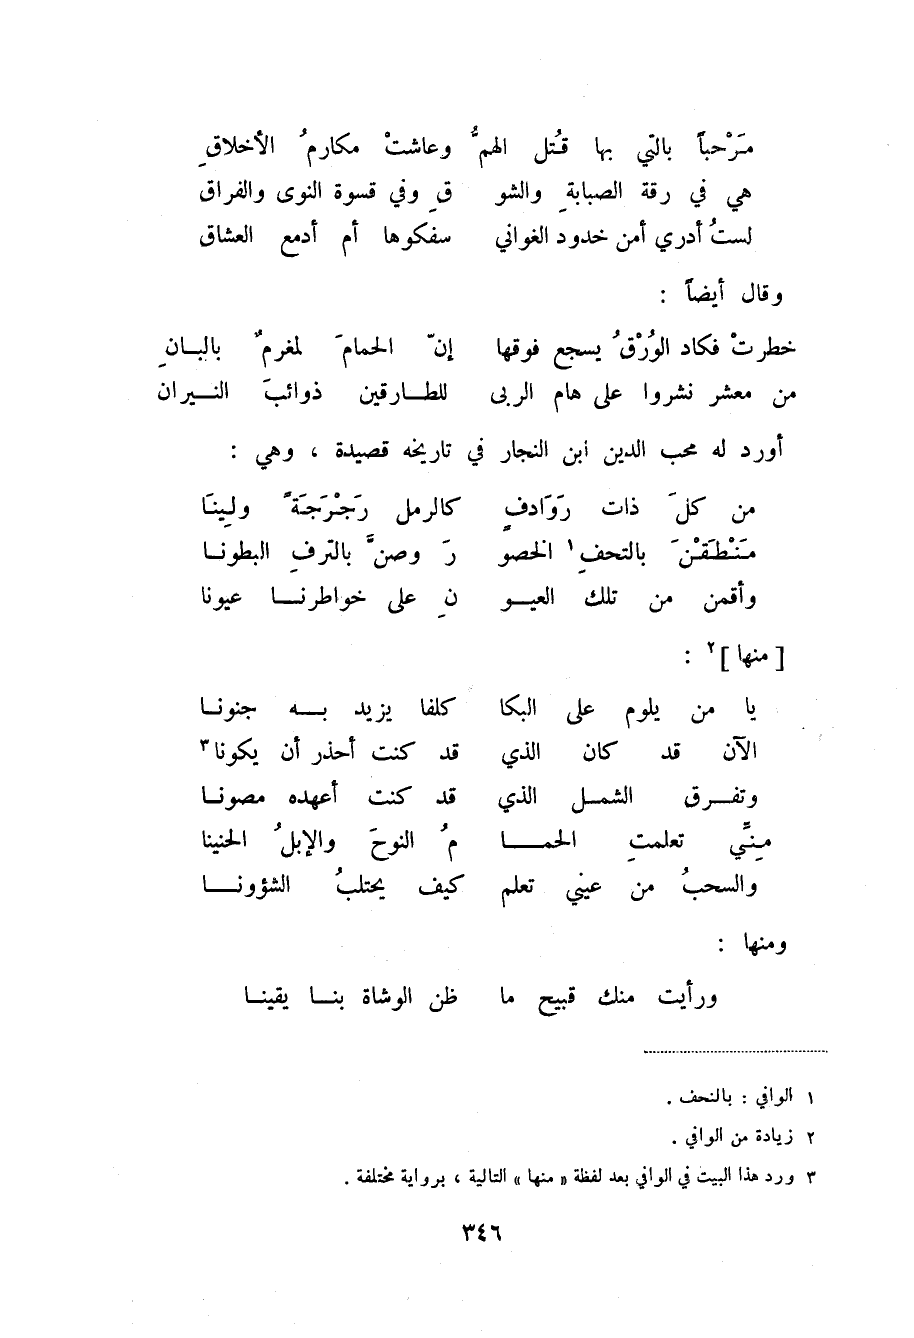 مَرْحباً بالتي بها قُتل الهمُّ وعاشتْ مكارمُ الأخلاقِ
هي في رقة الصبابةِ والشو قِ وفي قسوة النوى والفراق
لستُ أدري أمن خدود الغواني سفكوها أم أدمع العشاق
وقال أيضاً :
خطرتْ فكاد الوُرْقُ يسجع فوقها إنّ الحمامَ لمغرمٌ بالبـانِ
من معشر نشروا على هام الربى للطـارقين ذوائبَ النـيران
أورد له محب الدين ابن النجار في تاريخه قصيدة ، وهي :
من كلَ ذات رَوَادفٍ كالرمل رَجْرَجَةً ولِينَا
مَنَطَقْنَ بالتحفِ ١ الخصو رَ وصنَّ بالترفِ البطونـا
وأقمن من تلك العيـو نِ على خواطرنـا عيونا
[ منها ] ٢ :
يا من يلوم على البكا كلفا يزيد بـه جنونـا
الآن قد كان الذي قد كنت أحذر أن يكونا ٣
وتفـرق الشمـل الذي قد كنت أعهده مصونـا
مِنِّي تعلمتِ الحمـا مُ النوحَ والإبلُ الحنينا
والسحبُ من عيني تعلم كيف يحتلبُ الشؤونـا
ومنها :
ورأيت منك قبيح ما ظن الوشاة بنـا يقينـا
١ الوافي : بالنحف .
٢ زيادة من الوافي .
٣ ورد هذا البيت في الوافي بعد لفظة « منها » التالية ، برواية مختلفة .
٣٤٦